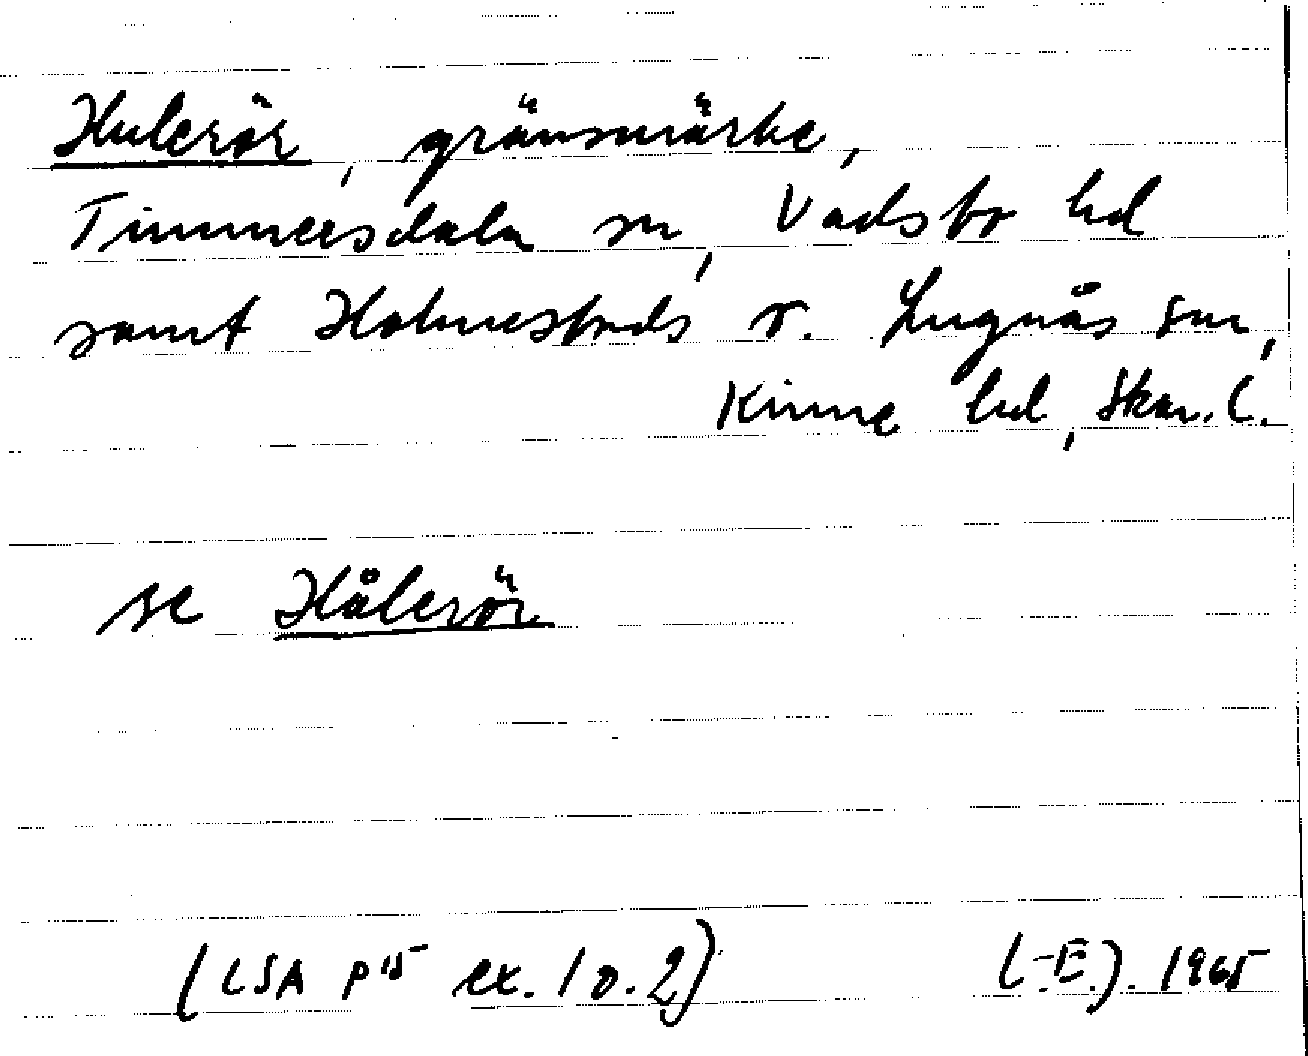 Hulerör, gränsmärke,
Timmersdala sn, Vadsbo hd
samt Holmestads o. Lugnås snr,
Kinne hd, Skar. l.
se Hålerör
(LSA P 15 ex. 1 o. 2) (-E-). 1965